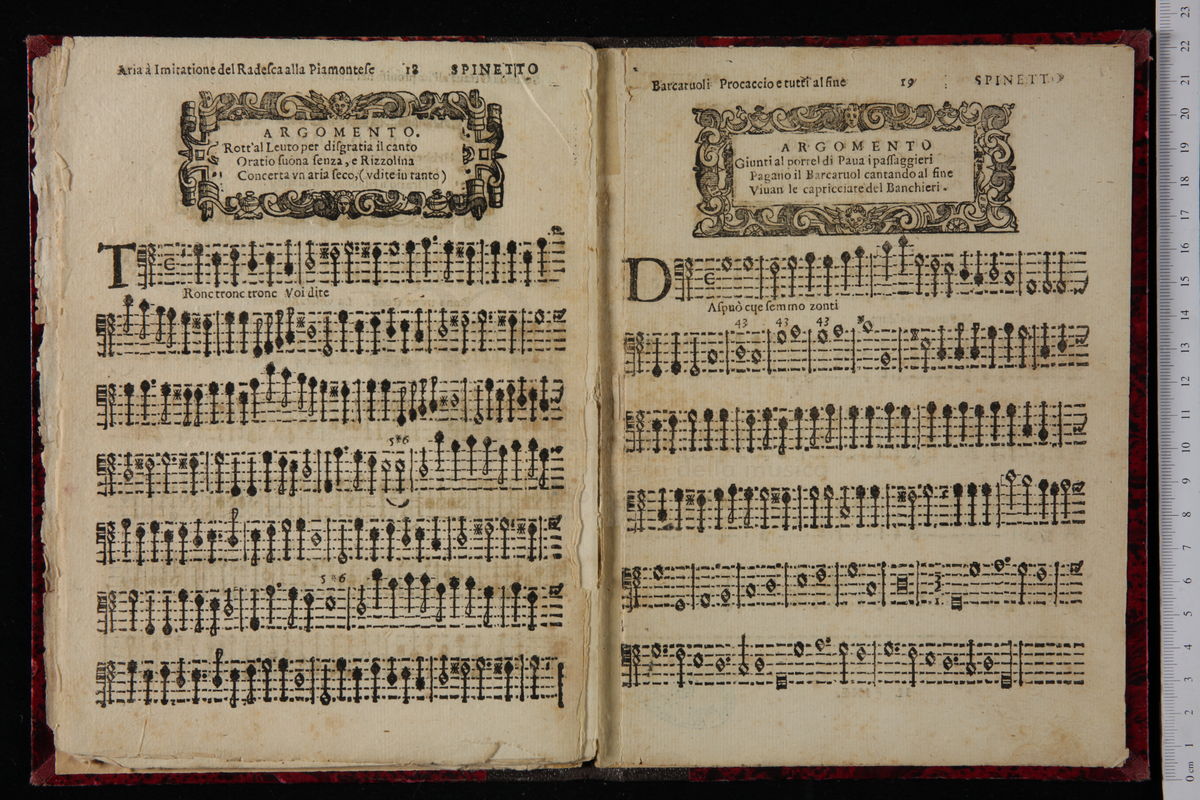 Aria à Imitatione del Radesca alla Piamontese 18 SPINETTO
ARGOMENTO.
Rott'al Leuto per disgratia il canto
Oratio suona senza, e Rizzolina
Concerta vn aria seco, (vdite in tanto)
T
Ronc tronc tronc Voi dite
5*6
5*6
Barcaruoli Procaccio e tutti al fine 19 SPINETTO
ARGOMENTO
Giunti al portel di Paua i passaggieri
Pagano il Barcaruol cantando al fine
Viuan le capricciate del Banchieri.
D
Aspuò cqe semmo zonti
43 43 43